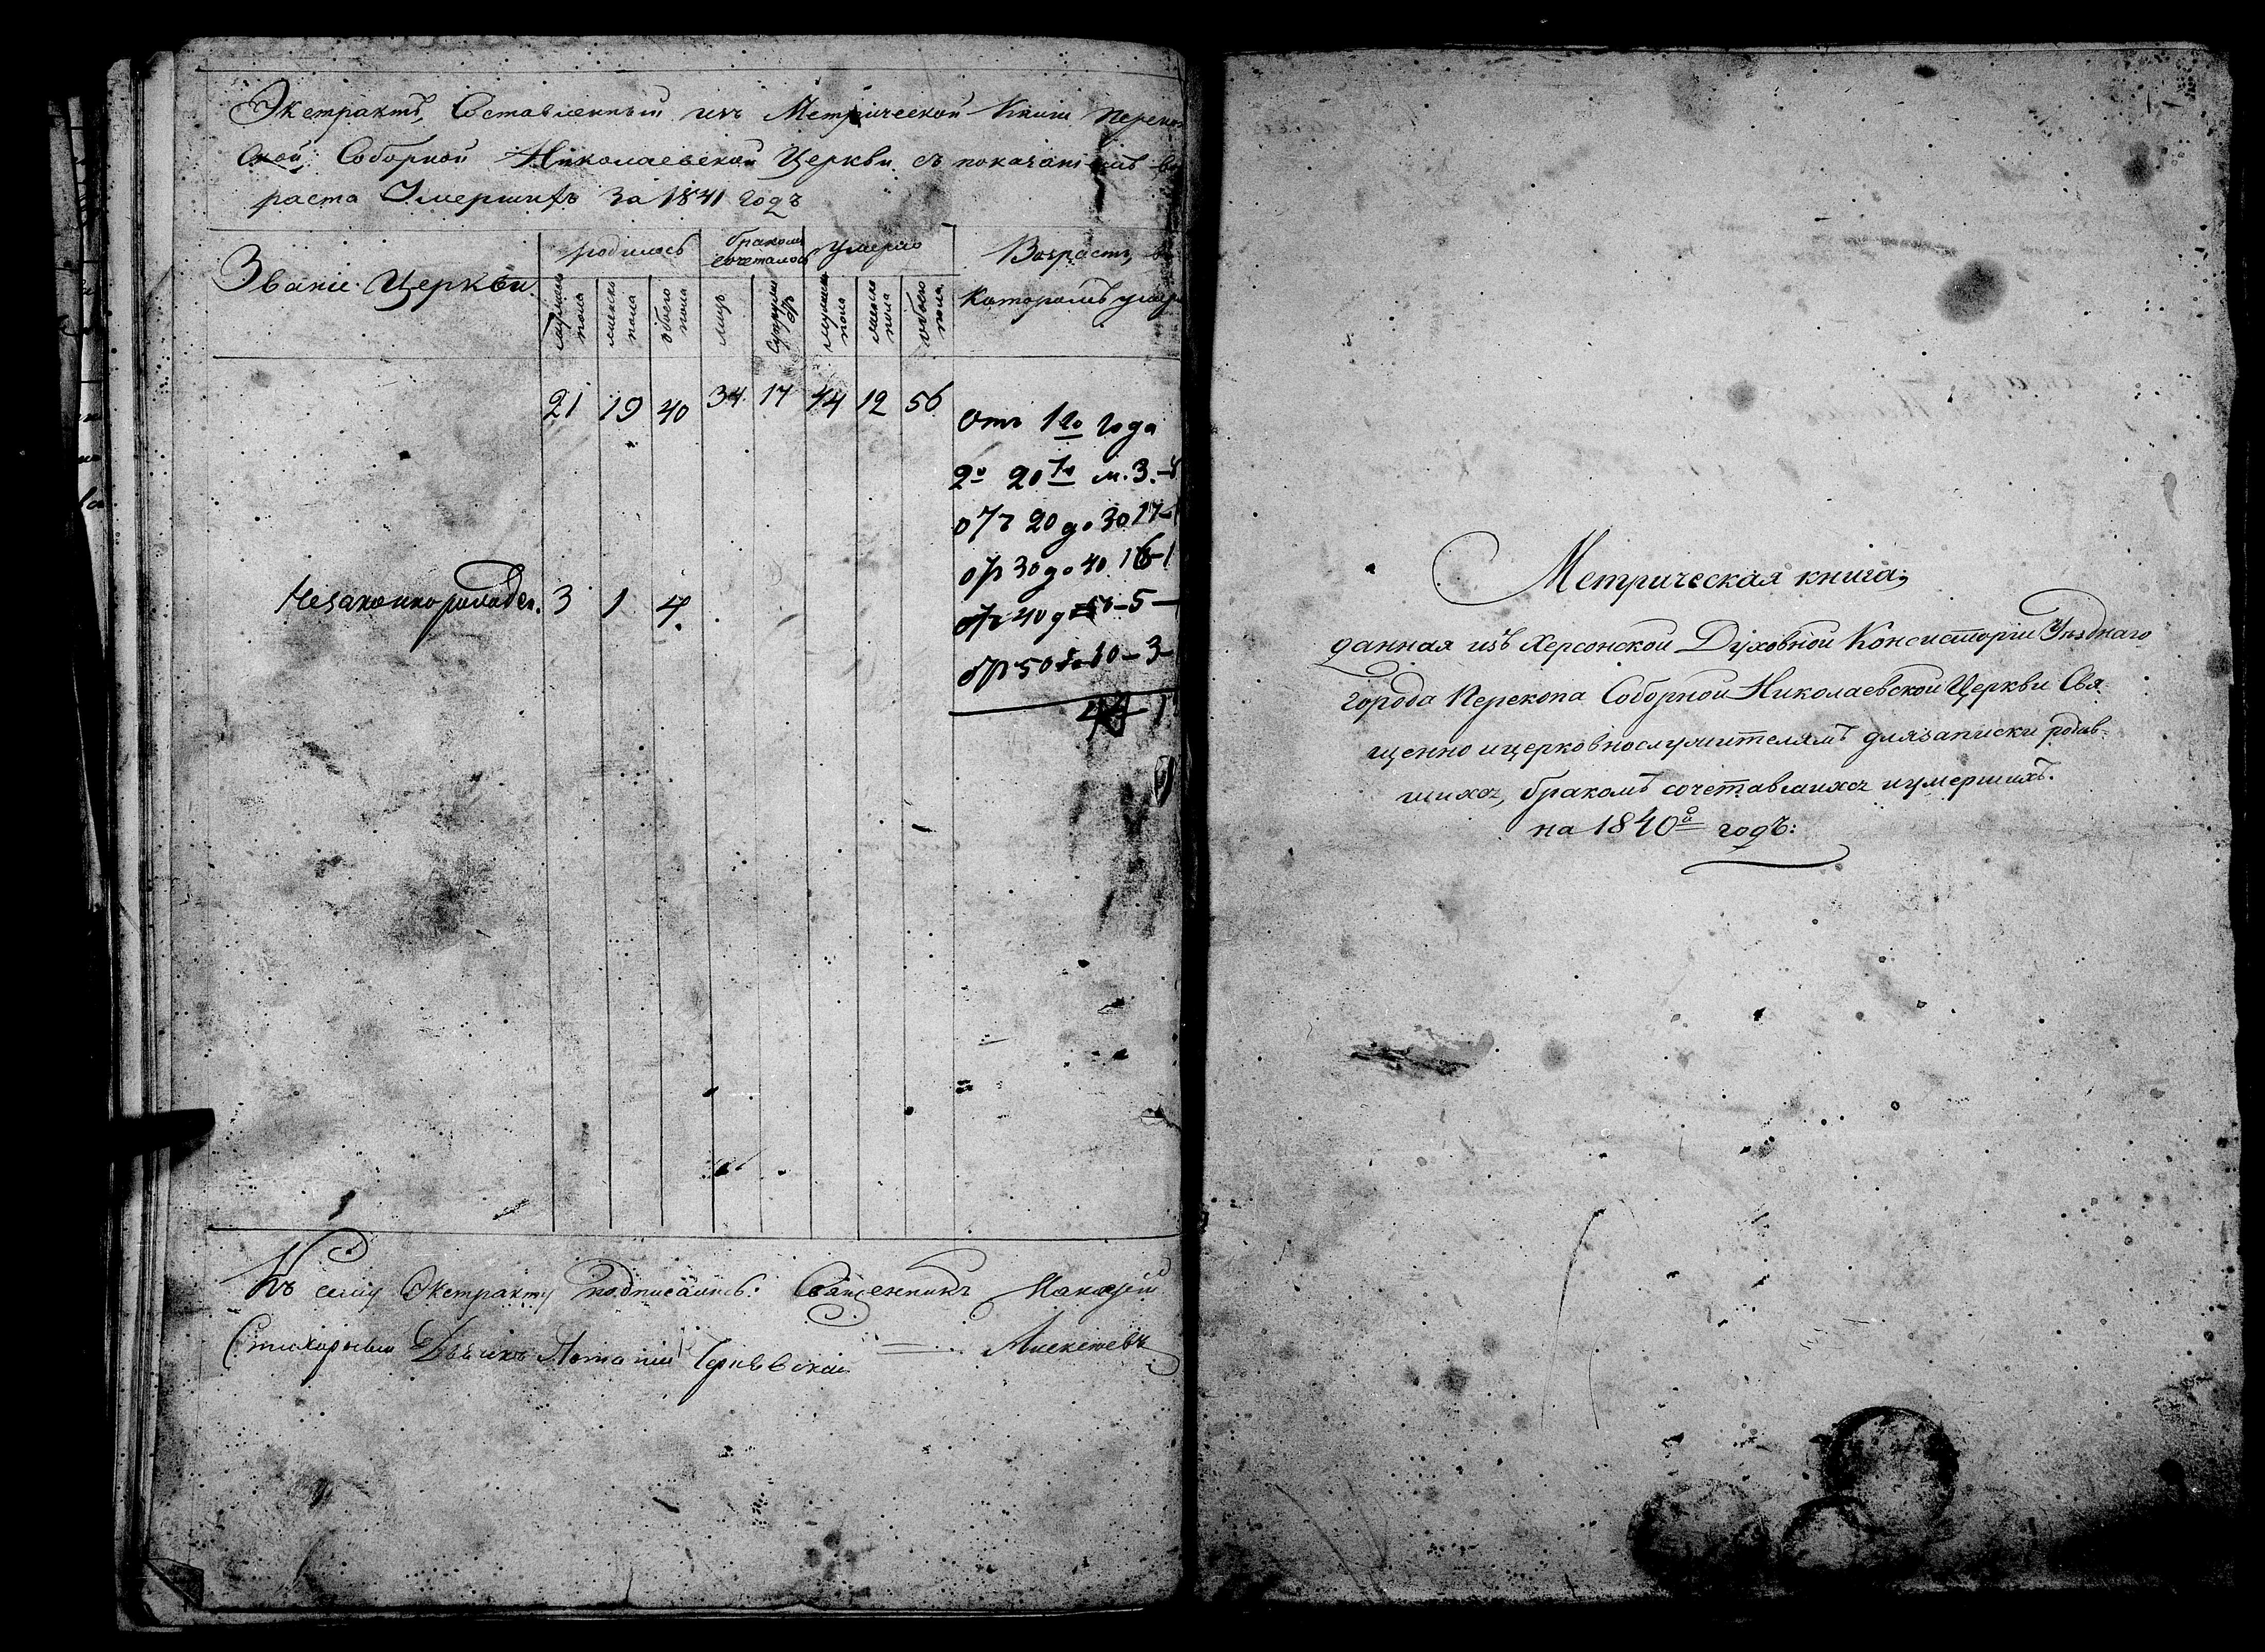 Экстрактъ, Составленный изъ Метрической Книги Переко
ской Соборной Николаевской Церкви съ показаніемъ во
раста Умершихъ За 1841 годъ
Званіе Церкви.
родилось
бракомъ сочеталось
умерло
Возрастъ, въ
которомъ умер
мужеска пола
женска пола
обоего пола
лицъ
супружествъ
мужеска пола
женска пола
обоего пола
21 19 40 34. 17 44 12 56
отъ 1го года
до 20го м. 3.
отъ 20 до 30 17
отъ 30 до 40 16-1
Незаконнорожден. 3 1 4.
отъ 40 до 50-5-
отъ 50 до 60-3-
44
Къ сему Экстракту подписались: Священникъ Макарій
Алексѣевъ
Стихарный Дьячекъ Потапій
Метрическая книга,
данная изъ Херсонской Духовной Консисторіи Уѣзднаго
города Перекопа Соборной Николаевской Церкви Свя
щенно и церковнослужителямъ для записки родив-
шихся, бракомъ сочетавшихся и умершихъ.
на 1840й годъ: